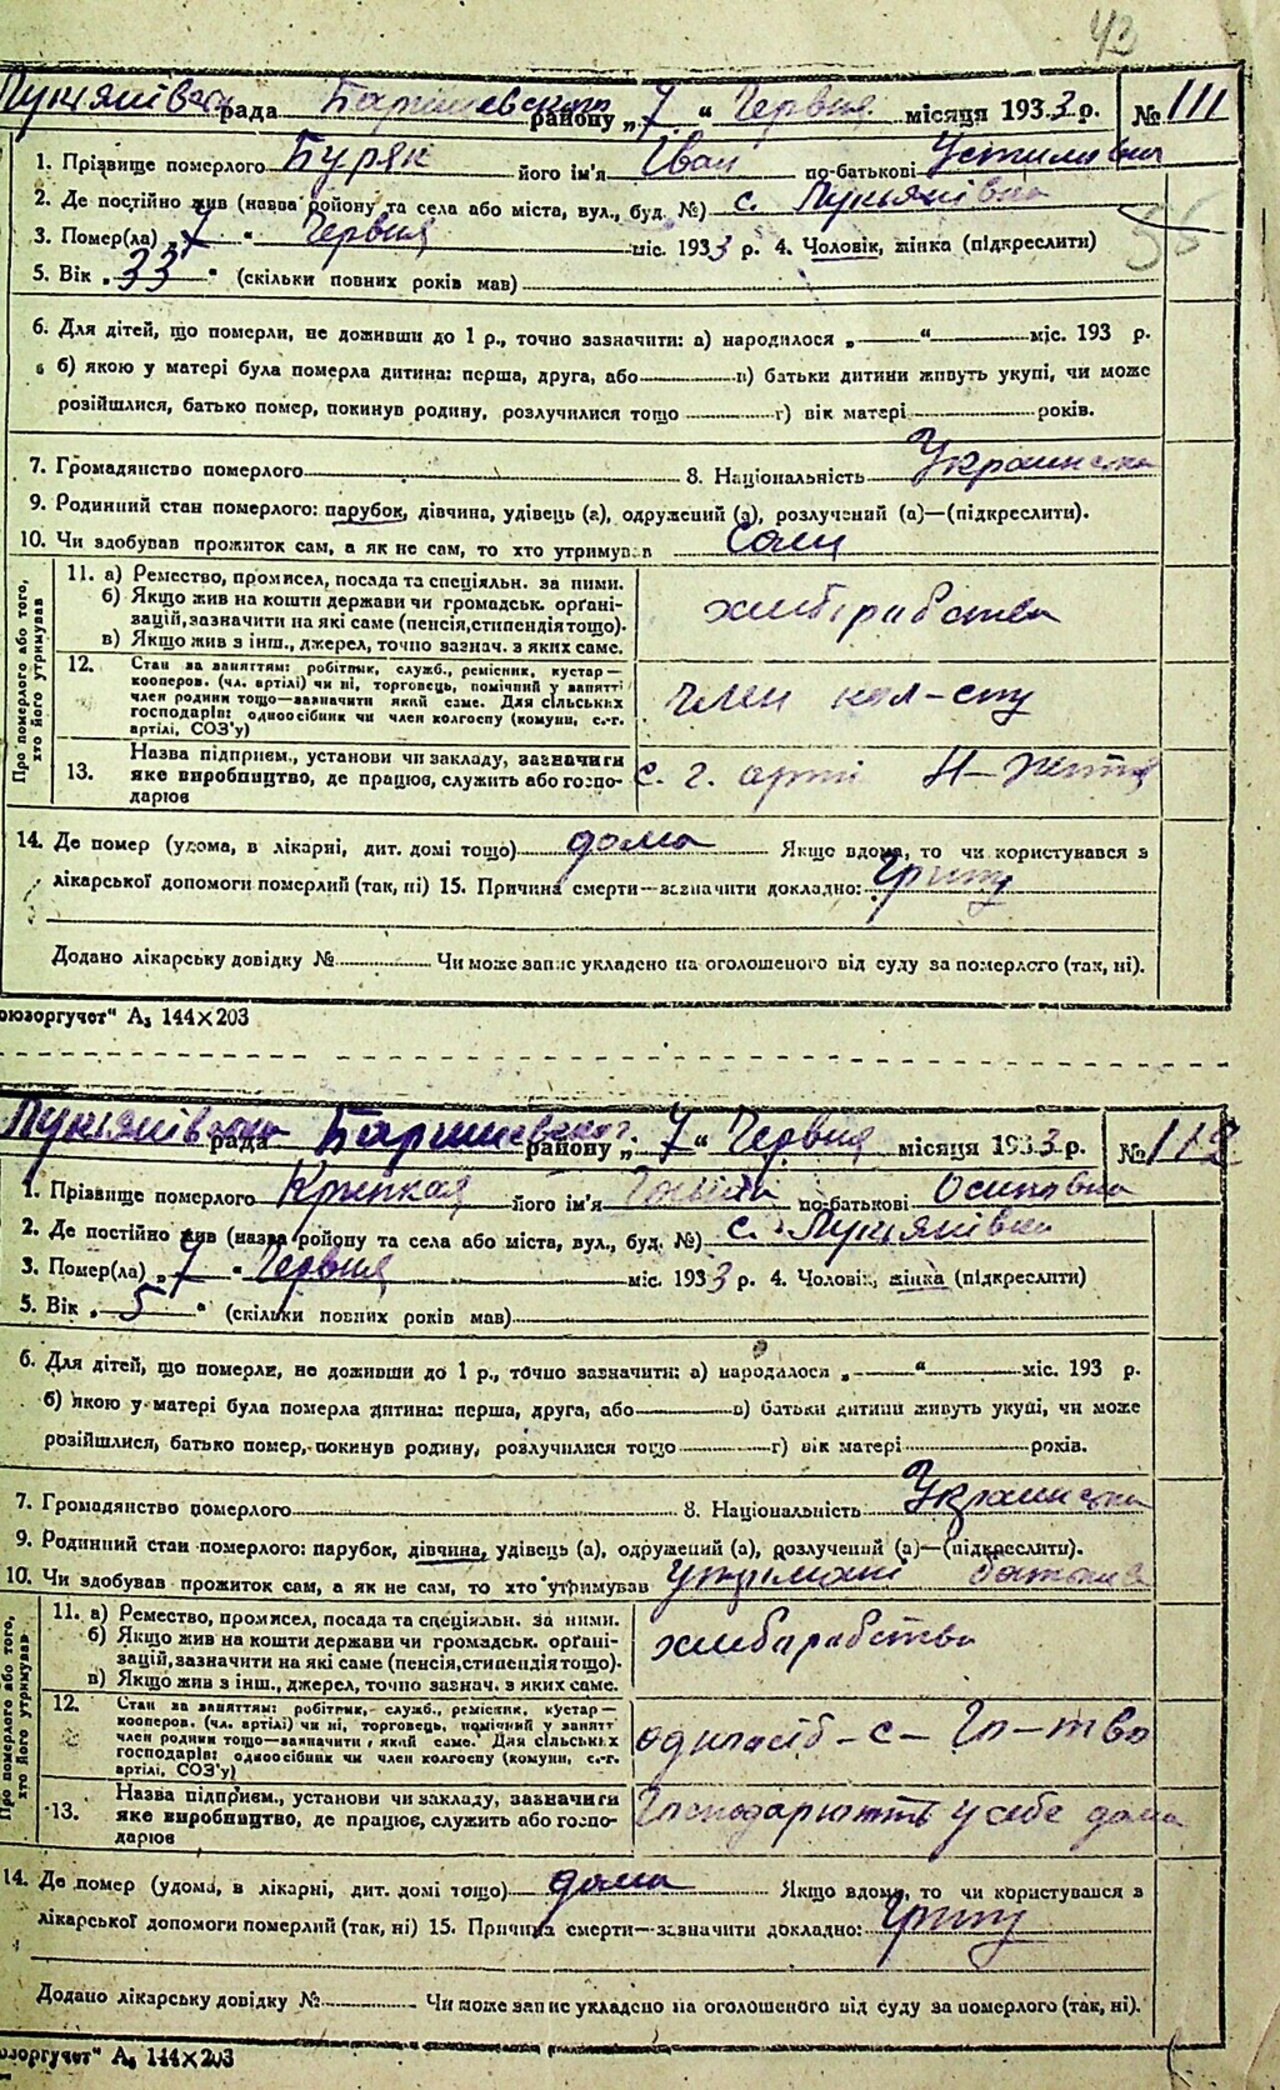 43
Лукянівська рада Баришевського району „7“ Червня місяця 1933 р. № 111
1. Прізвище померлого Буряк його ім'я Іван по-батькові
2. Де постійно жив (назва ройону та села або міста, вул., буд. №) с. Лукьянівка
3. Помер(ла) „7“ Червня міс. 1933 р. 4. Чоловік, жінка (підкреслити)
5. Вік „33“ (скільки повних років мав)
6. Для дітей, що померли, не доживши до 1 р., точно зазначити: а) народилося „ “ міс. 193 р.
б) якою у матері була померла дитина: перша, друга, або в) батьки дитини живуть укупі, чи може
розійшлися, батько помер, покинув родину, розлучилися тощо г) вік матері років.
7. Громадянство померлого 8. Національність Украинська
9. Родинний стан померлого: парубок, дівчина, удівець (а), одружений (а), розлучений (а)—(підкреслити).
10. Чи здобував прожиток сам, а як не сам, то хто утримував Сам
Про померлого або того, хто його утримував
11. а) Ремество, промисел, посада та спеціяльн. за ними.
б) Якщо жив на кошти держави чи громадськ. орґані-
зацій, зазначити на які саме (пенсія, стипендія тощо).
в) Якщо жив з інш., джерел, точно зазнач. з яких саме.
хліборобство
12. Стан за заняттям: робітник, служб., ремісник, кустар—
кооперов. (чл. артілі) чи ні, торговець, помічний у занятті
член родини тощо—зазначити який саме. Для сільських
господарів: одноосібник чи член колгоспу (комуни, с.-г.
артілі, СОЗ'у)
член кол-спу
13. Назва підприєм., установи чи закладу, зазначити
яке виробництво, де працює, служить або госпо-
дарює
с. г. арті Н-життя
14. Де помер (удома, в лікарні, дит. домі тощо) дома Якщо вдома, то чи користувався з
лікарської допомоги померлий (так, ні) 15. Причина смерти—зазначити докладно: Грипу
Додано лікарську довідку № Чи може запис укладено на оголошеного від суду за померлого (так, ні).
оюзоргучот“ А₃ 144×203
Лукьянівська рада Баришевськог району „7“ Червня місяця 1933 р. № 112
1. Прізвище померлого Крипкая його ім'я по-батькові Осиповна
2. Де постійно жив (назва ройону та села або міста, вул., буд. №) с. Лукьянівка
3. Помер(ла) „7“ Червня міс. 1933 р. 4. Чоловік, жінка (підкреслити)
5. Вік „5“ (скільки повних років мав)
6. Для дітей, що померли, не доживши до 1 р., точно зазначити: а) народилося „ “ міс. 193 р.
б) якою у матері була померла дитина: перша, друга, або в) батьки дитини живуть укупі, чи може
розійшлися, батько помер, покинув родину, розлучилися тощо г) вік матері років.
7. Громадянство померлого 8. Національність Украинська
9. Родинний стан померлого: парубок, дівчина, удівець (а), одружений (а), розлучений (а)—(підкреслити).
10. Чи здобував прожиток сам, а як не сам, то хто утримував Утримані батьків
Про померлого або того, хто його утримував
11. а) Ремество, промисел, посада та спеціяльн. за ними.
б) Якщо жив на кошти держави чи громадськ. орґані-
зацій, зазначити на які саме (пенсія, стипендія тощо).
в) Якщо жив з інш., джерел, точно зазнач. з яких саме.
хліборобство
12. Стан за заняттям: робітник, служб., ремісник, кустар—
кооперов. (чл. артілі) чи ні, торговець, помічний у занятт
член родини тощо—зазначити який саме. Для сільських
господарів: одноосібник чи член колгоспу (комуни, с.-г.
артілі, СОЗ'у)
одноосіб-с-Го-тво
13. Назва підприєм., установи чи закладу, зазначити
яке виробництво, де працює, служить або госпо-
дарює
Господарюють у себе дома
14. Де помер (удома, в лікарні, дит. домі тощо) дома Якщо вдома, то чи користувався з
лікарської допомоги померлий (так, ні) 15. Причина смерти—зазначити докладно: Грипу
Додано лікарську довідку № Чи може запис укладено на оголошеного від суду за померлого (так, ні).
юзоргучот“ А₃ 144×203